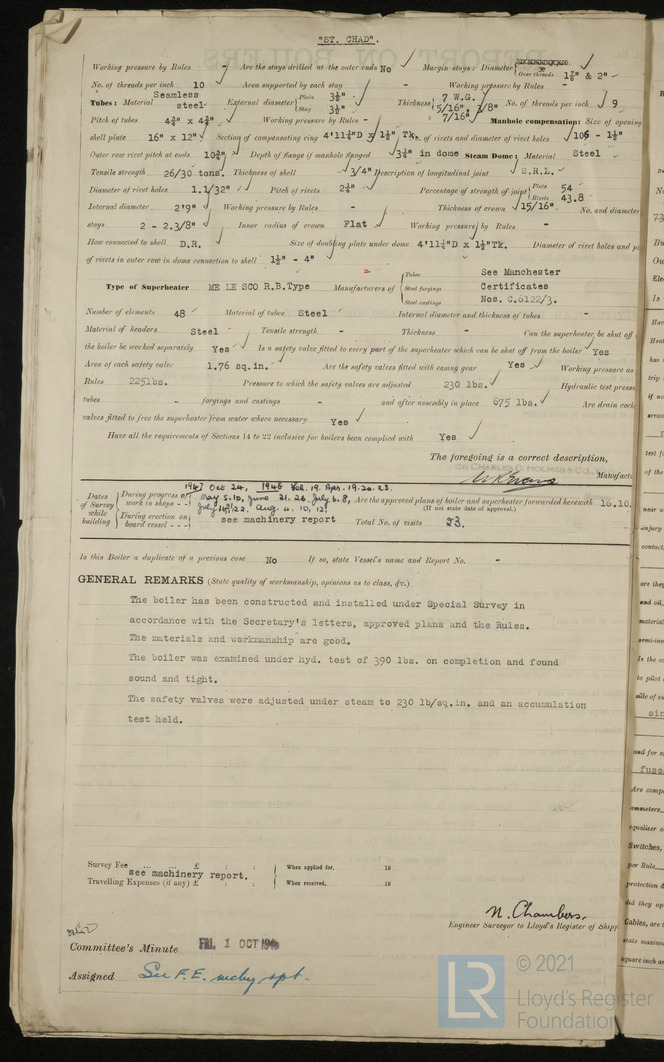 "ST. CHAD".
Working pressure by Rules - Are the stays drilled at the outer ends No Margin stays: Diameter { Over threads 1⅞" & 2"
No. of threads per inch 10 Area supported by each stay - Working pressure by Rules -
Tubes: Material Seamless steel External diameter { Plain 3½" Stay 3½" Thickness { 7 W.G. 5/16", 3/8" 7/16" No. of threads per inch 9
Pitch of tubes 4¾" x 4¾" Working pressure by Rules - Manhole compensation: Size of opening
shell plate 16" x 12" Section of compensating ring 4'11¼"D x 1½" Tk. of rivets and diameter of rivet holes 106 - 1½"
Outer row rivet pitch at ends 10¾" Depth of flange if manhole flanged 3¼" in dome Steam Dome: Material Steel
Tensile strength 26/30 tons. Thickness of shell 3/4" Description of longitudinal joint S.R.L.
Diameter of rivet holes 1.1/32" Pitch of rivets 2¼" Percentage of strength of joint { Plate 54 Rivets 43.8
Internal diameter 2'9" Working pressure by Rules - Thickness of crown 15/16" No. and diameter
stays 2 - 2.3/8" Inner radius of crown Flat Working pressure by Rules -
How connected to shell D.R. Size of doubling plate under dome 4'11¼"D x 1½"Tk. Diameter of rivet holes and
of rivets in outer row in dome connection to shell 1½" - 4"
Type of Superheater ME LE SCO R.B.Type Manufacturers of { Tubes Steel forgings Steel castings See Manchester Certificates Nos. C.6122/3.
Number of elements 48 Material of tubes Steel Internal diameter and thickness of tubes -
Material of headers Steel Tensile strength - Thickness - Can the superheater be shut off
the boiler be worked separately Yes Is a safety valve fitted to every part of the superheater which can be shut off from the boiler Yes
Area of each safety valve 1.76 sq.in. Are the safety valves fitted with easing gear Yes Working pressure as
Rules 225lbs. Pressure to which the safety valves are adjusted 230 lbs. Hydraulic test press
tubes - forgings and castings - and after assembly in place 675 lbs. Are drain cock
valves fitted to free the superheater from water where necessary Yes
Have all the requirements of Sections 14 to 22 inclusive for boilers been complied with Yes
The foregoing is a correct description,
Manufact
Dates of Survey while building { During progress of work in shops - - 1947 Oct 24, 1948 Feb. 19. Apr. 19. 20. 23. May 5.10, June 21. 26. July 6. 8, Aug 4. 10, 12. Are the approved plans of boiler and superheater forwarded herewith 16.10.
(If not state date of approval.)
During erection on board vessel - - - see machinery report Total No. of visits 23.
Is this Boiler a duplicate of a previous case No If so, state Vessel's name and Report No. -
GENERAL REMARKS (State quality of workmanship, opinions as to class, &c.)
The boiler has been constructed and installed under Special Survey in
accordance with the Secretary's letters, approved plans and the Rules.
The materials and workmanship are good.
The boiler was examined under hyd. test of 390 lbs. on completion and found
sound and tight.
The safety valves were adjusted under steam to 230 lb/sq.in. and an accumulation
test held.
Survey Fee ... ... £ : : When applied for, 19
see machinery report.
Travelling Expenses (if any) £ : : When received, 19
N. Chambers.
Engineer Surveyor to Lloyd's Register of Shipp
Committee's Minute FRI. 1 OCT 194
Assigned See F.E. mchy rpt.
LR © 2021
Lloyd's Register
Foundation